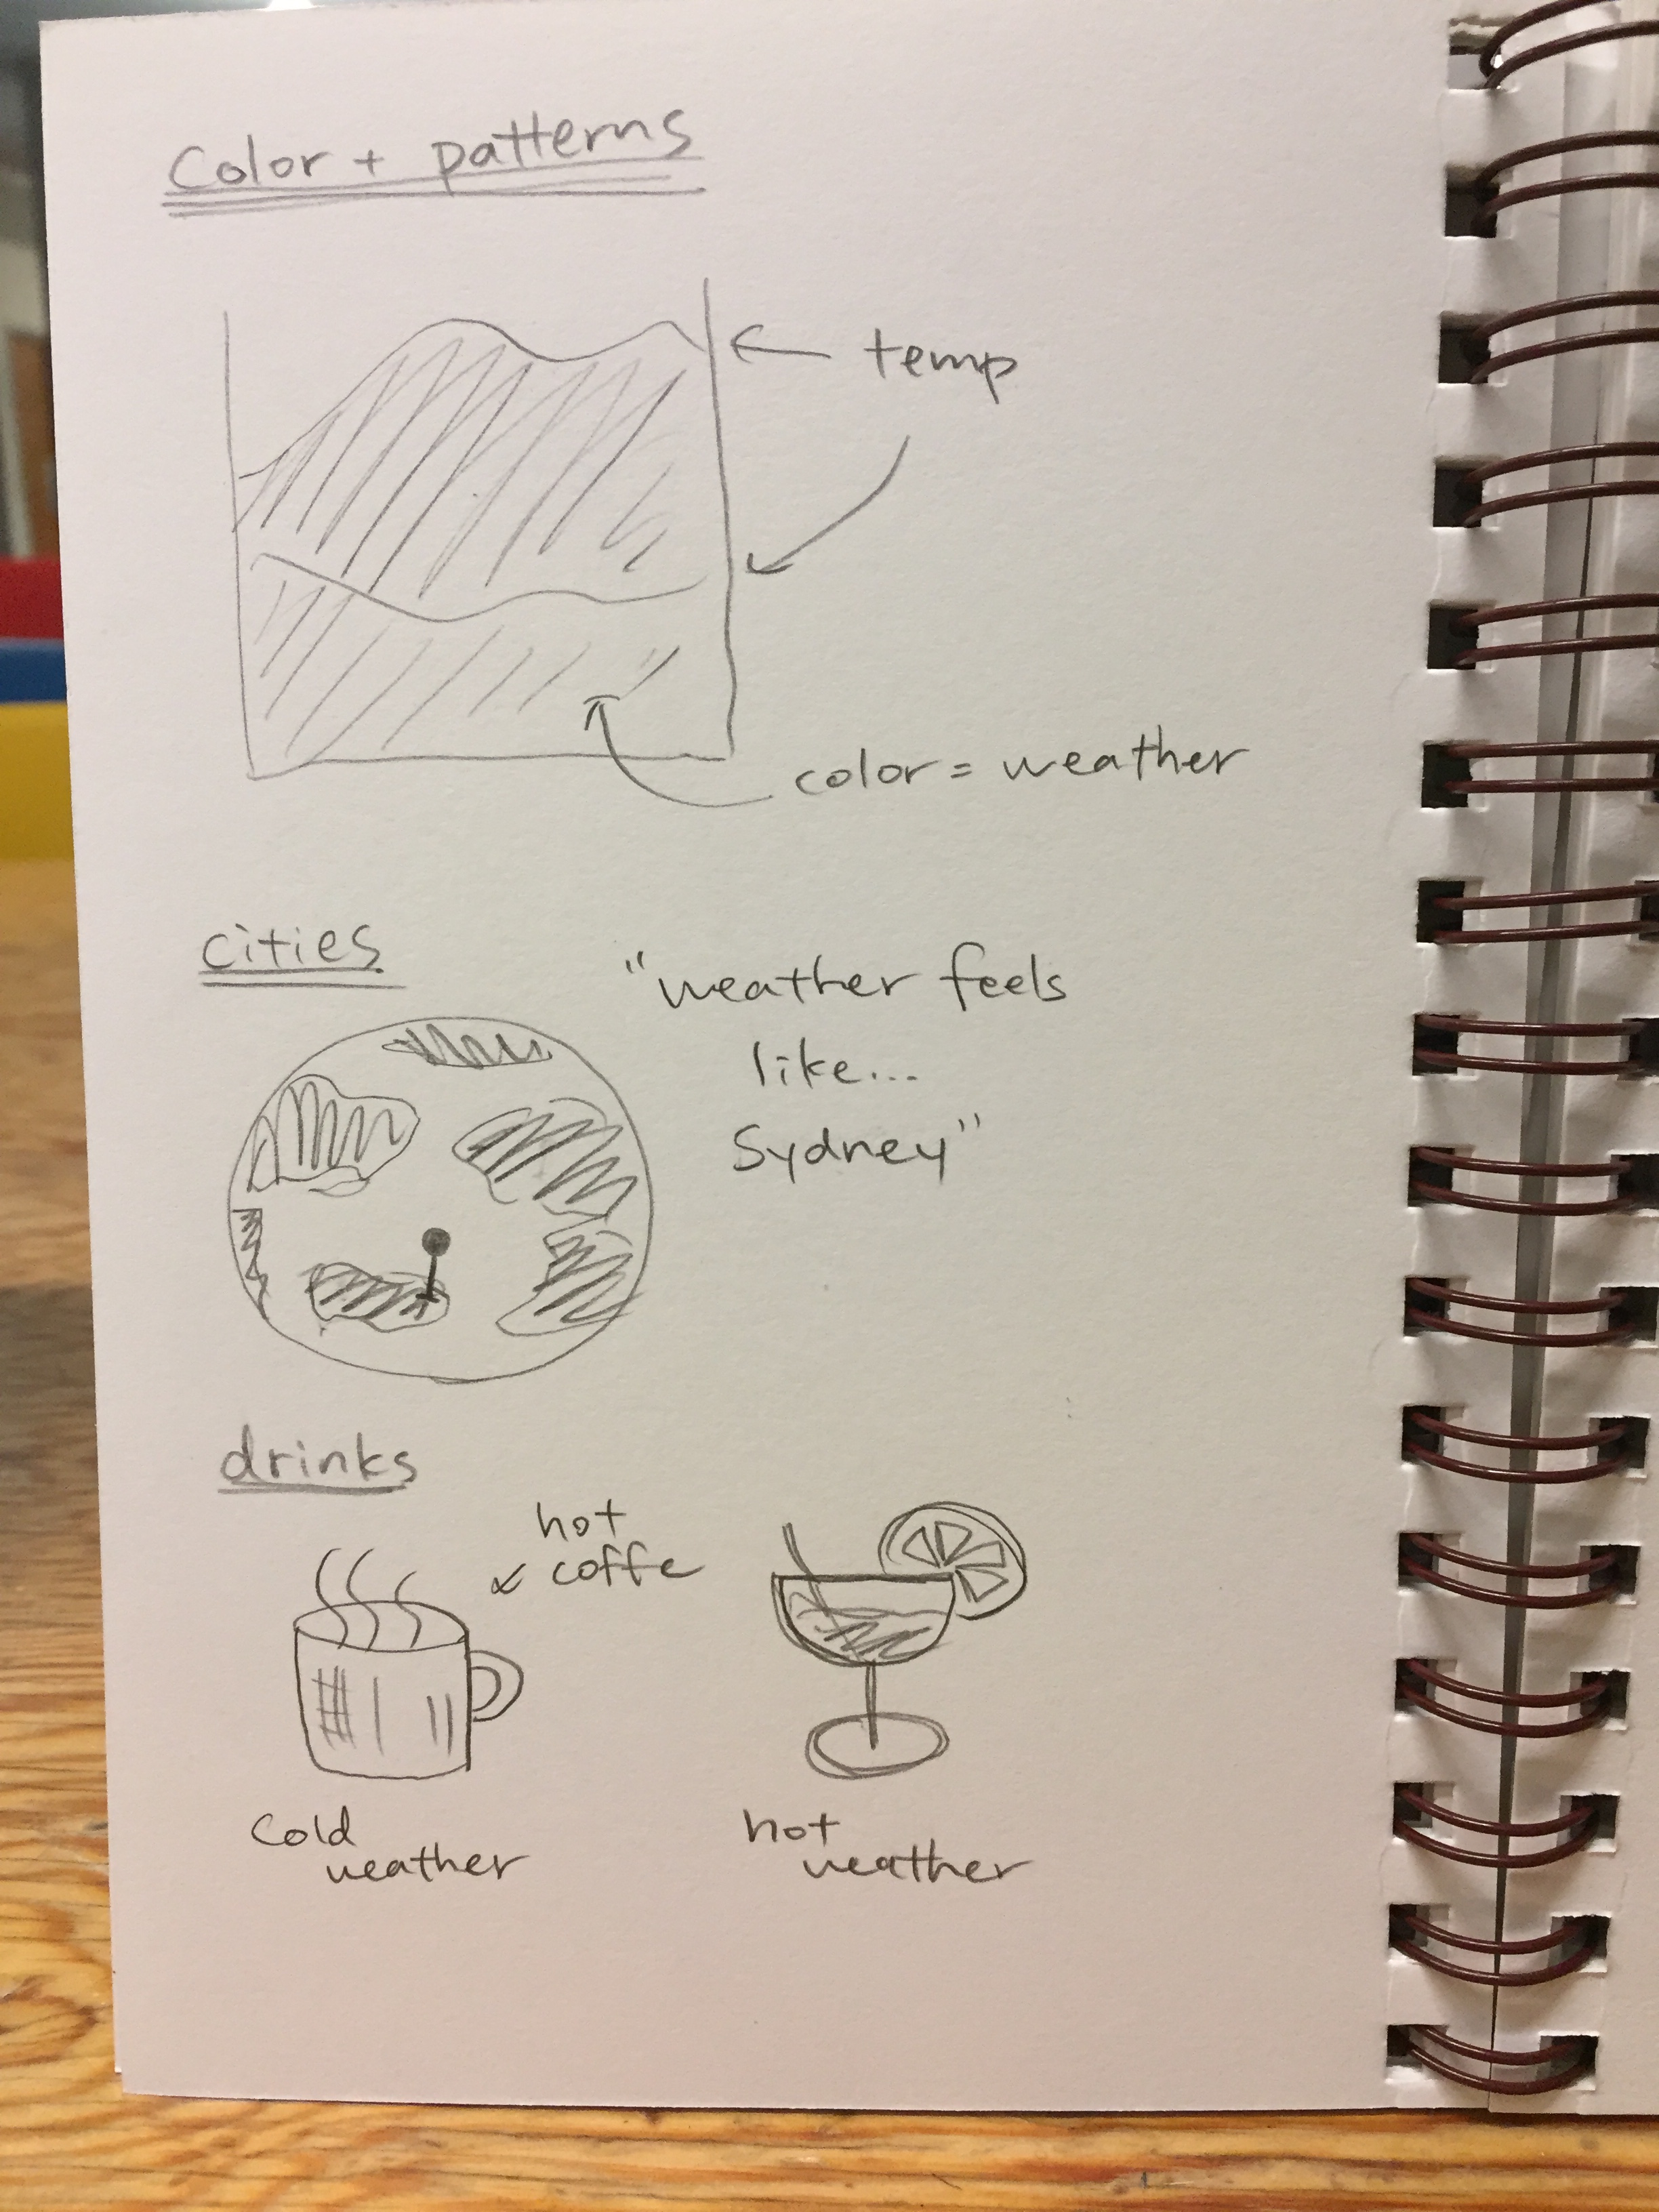 Color + patterns
temp
color = weather
cities
"weather feels
like...
Sydney"
drinks
hot
coffe
cold
weather
hot
weather